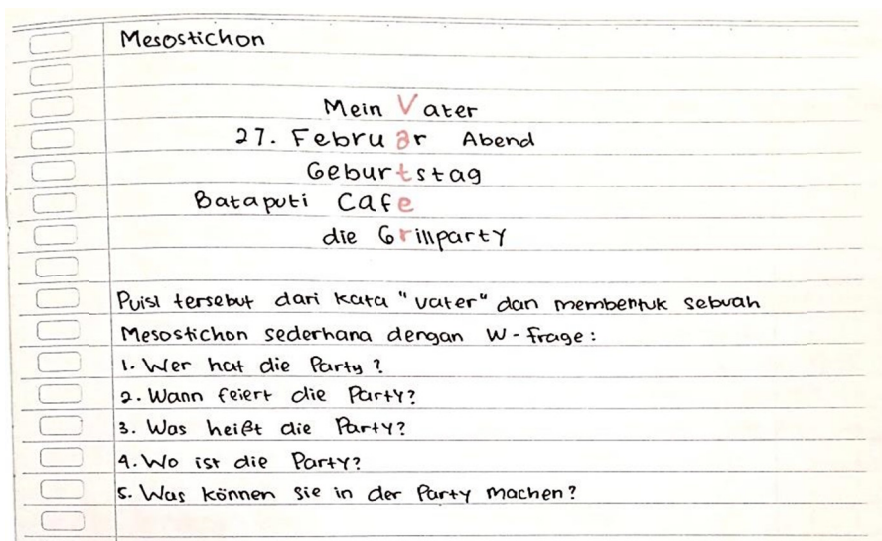 Mesostichon
Mein Vater
27. Februar Abend
Geburtstag
Bataputi Cafe
die Grillparty
Puisi tersebut dari kata "vater" dan membentuk sebuah
Mesostichon sederhana dengan W-Frage:
1. Wer hat die Party?
2. Wann feiert die Party?
3. Was heißt die Party?
4. Wo ist die Party?
5. Was können sie in der Party machen?